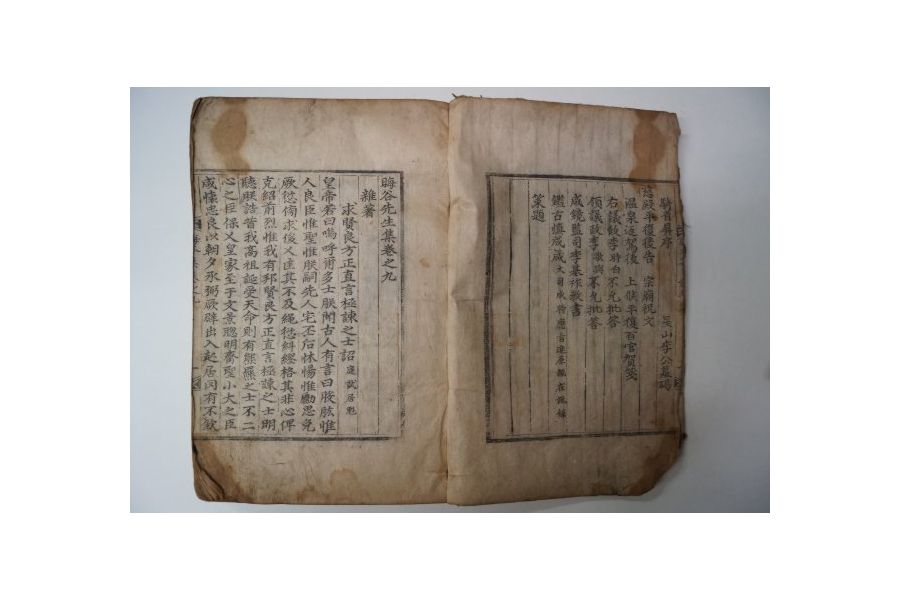 騎省屏序 吳山李公墓碣
慈殿平復後告 宗廟祝文
溫泉返駕後 上候平復百官賀箋
右議政李時白不允批答
領議政李敬輿不允批答
咸鏡監司李基祚敎書
鑑古愼戒箴
策題
晦谷先生集卷之九
雜著
求賢良方正直言極諫之士詔 庭試居魁
皇帝若曰嗚呼爾多士朕聞古人有言曰股肱惟
人良臣惟聖惟朕嗣先人宅丕后怵惕惟勵思免
厥愆傍求俊乂匡其不及繩愆糾繆格其非心俾
克紹前烈惟我有邦賢良方正直言極諫之士明
聽朕誥昔我高祖誕受天命則有熊羆之士不二
心之臣保乂皇家至于文景聰明齊聖小大之臣
咸懷忠良以朝夕承弼厥辟出入起居罔有不欽